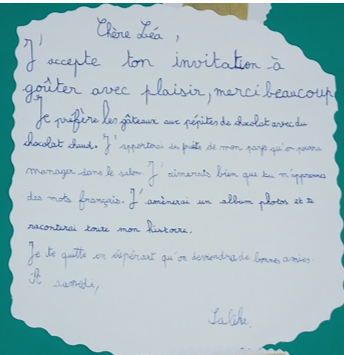 Chère Léa,
J'accepte ton invitation à
goûter avec plaisir, merci beaucoup
Je préfère les gâteaux aux pépites de chocolat avec du
chocolat chaud. J'apporterai des de mon pays qu'on pourra
manager dans le salon J'aimerais bien que tu m'apprennes
des mots français. J'amènerai un album photos et te
raconterai toute mon histoire.
Je te quitte en espérant qu'on deviendra de bonnes amies.
A samedi,